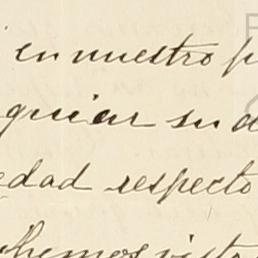 en nuestro p
quiar su d
edad respecto
hemos visto